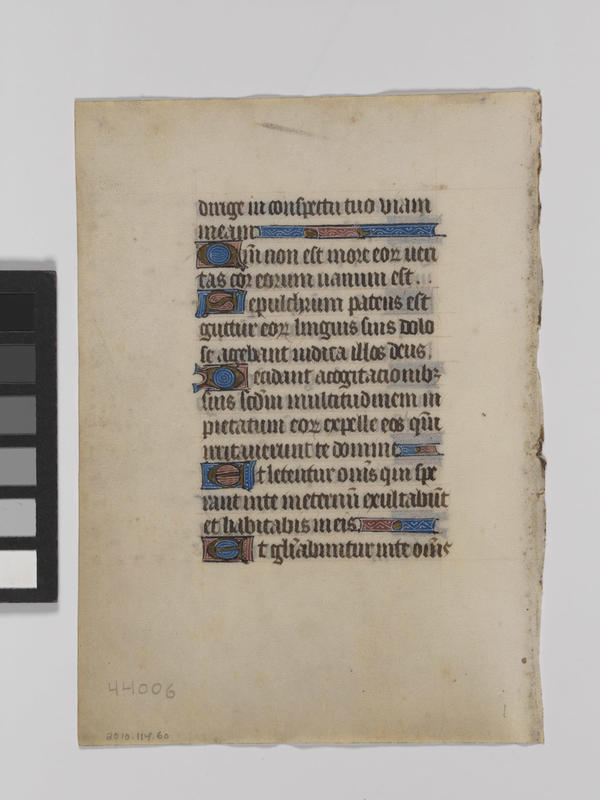 dirige in conspectu tuo viam
meam
Qm̄ non est in ore eoꝝ veri
tas cor eorum uanum est.
Sepulchrum patens est
guttur eoꝝ linguis suis dolo
se agebant iudica illos deus.
Decidant acogitacionibꝫ
suis scd̄m multitudinem in
pietatum eoꝝ expelle eos qm̄
irritauerunt te domine
Et letentur om̄s qui spe
rant inte ineternū exultabūt
et habitabis in eis.
Et gl̄iabuntur inte om̄s
44006
2010.114.60